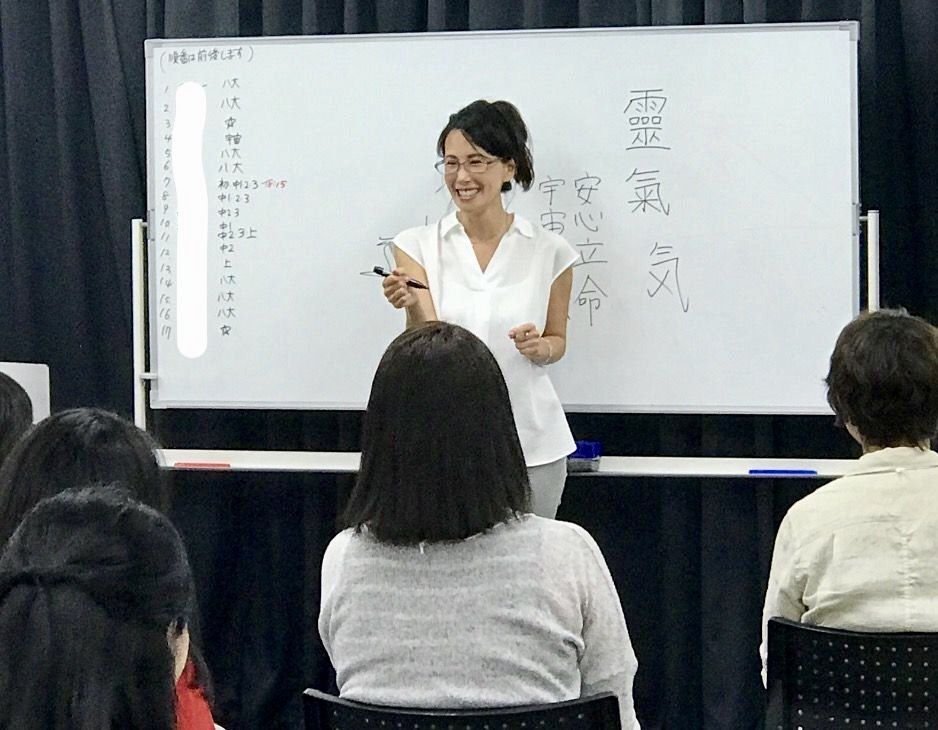 (順番は前後します)
1 八大
2 八大
3 ☆
4 宇宙
5 八大
6 八大
7 初中1・2・3
8 中1・2・3
9 中2・3
10 中1
11 中2.3上
12 中2
13 上
14 八大
15 八大
16 八大
17 ☆
靈氣
気
安心立命
宇宙